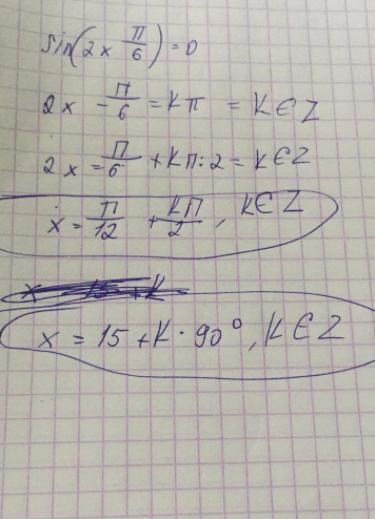 sin(2x π/6) = 0
2x - π/6 = kπ = k∈Z
2x = π/6 + kπ:2 = k∈Z
x = π/12 + kπ/2, k∈Z
x = 15 + k · 90°, k∈Z